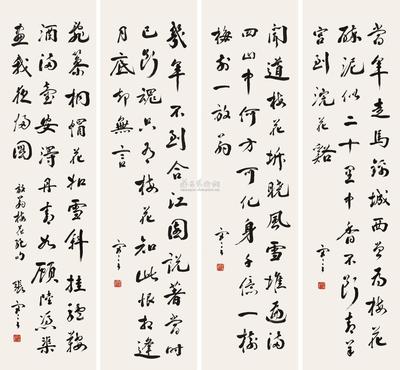 當年走馬錦城西曾為梅花
醉泥似二十里中香不斷青羊
宮到浣花谿
聞道梅花坼曉風雪堆遍滿
四山中何方可化身千億一樹
梅前一放翁
幾年不到合江園說著當時
已斷魂只有梅花知此恨相逢
月底卻無言
亂篸桐帽花如雪斜挂驢鞍
酒滿壺安得丹青如顧陸憑渠
畫我夜歸圖
放翁梅花絕句 張